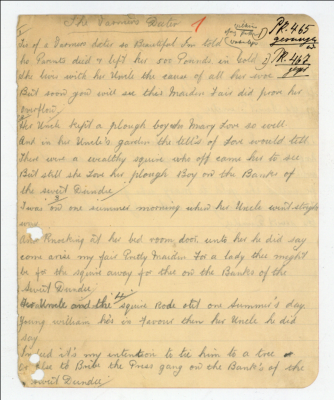 The Farmers Doter 1
Pk. 465
Tis of a Farmers doter so Beautiful I'm told
he Parents died & left her 500 Pounds in Gold
She livin with her Uncle the cause of all her woe
But soon you will see this Mardin Fair did prov her
overflow
Her Uncle kept a plough boy who Mary Love so well
And in her Uncle's garden the tell's of Love would tell
There were a wealthy squire who off came her to see
But still she Love her plough Boy on the Banks of
the swirt Dundie
I was on one summer morning when her Uncle went straight
way
And Knocking at her bed room door unto her he did say
come arise my fair Pretty Mardin For a lady thee might
be for the squire away for thee on the Banks of the
Swirt Dundie
Her Uncle and the squire Rode out one Summer's day
Young william his in Favour then her Uncle he did
say
Indeed it's my intention to tie him to a tree
or else to Bribe the Press gang on the Bank's of the
swirt Dundie